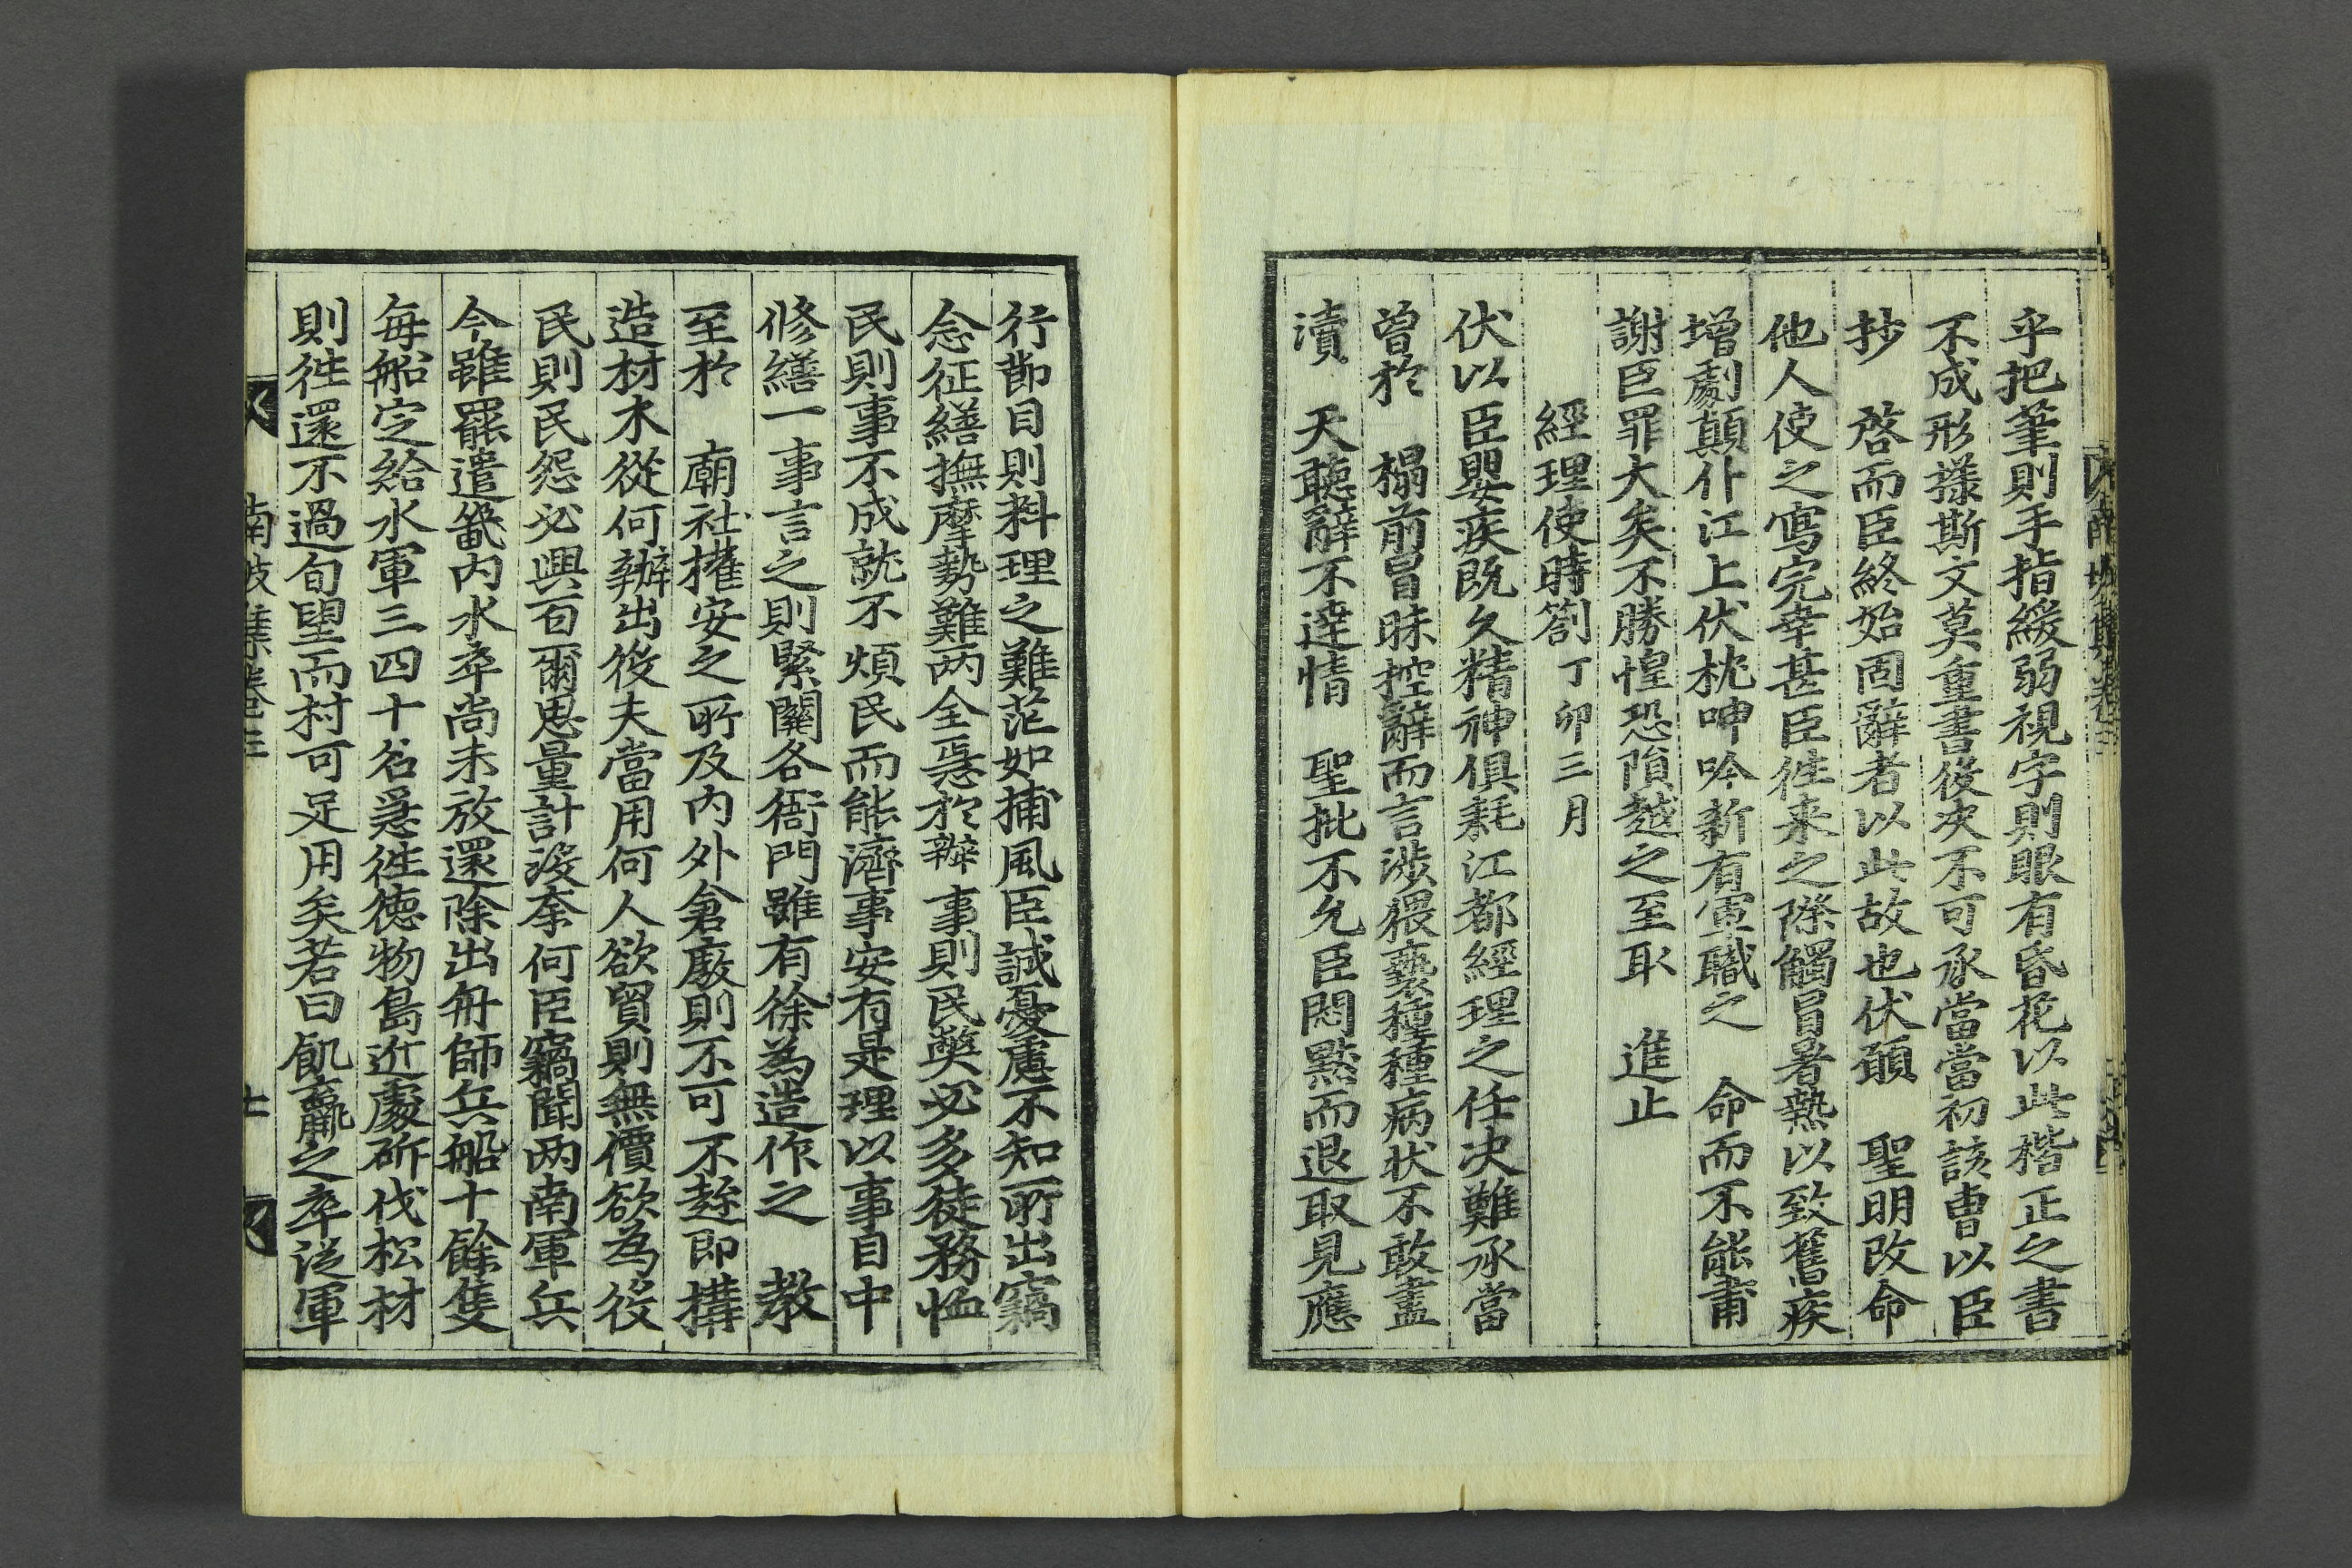 乎把筆則手指緩弱視字則眼有昏花以此楷正之書
不成形㨾斯文莫重書役决不可承當當初該曹以臣
抄　啓而臣終始固辭者以此故也伏願　聖明改命
他人使之寫完幸甚臣徃来之際觸冒暑熱以致舊疾
增劇顛仆江上伏枕呻吟新有軍職之　命而不能肅
謝臣罪大矣不勝惶恐隕越之至取　進止
經理使時箚丁卯三月
伏以臣嬰疾既久精神俱耗江都經理之任决難承當
曾於　榻前冒昧控辭而言涉猥䙝種種病状不敢盡
瀆　天聽辭不達情　聖批不允臣悶黙而退取見應
行節目則料理之難茫如捕風臣誠憂慮不知所出竊
念征繕撫摩勢難两全急於辦事則民弊必多徒務恤
民則事不成就不煩民而能濟事安有是理以事目中
修繕一事言之則緊關各衙門雖有徐為造作之　教
至於　廟社權安之所及内外倉廒則不可不趂即搆
造材木從何辦出役夫當用何人欲貿則無價欲為役
民則民怨必興百爾思量計沒柰何臣竊聞两南軍兵
今雖罷遣畿内水卒尚未放還除出舟師兵船十餘隻
每船定給水軍三四十名急徃德物島近處斫伐松材
則徃還不過旬望而材可足用矣若曰飢羸之卒從軍
南坡集卷之三